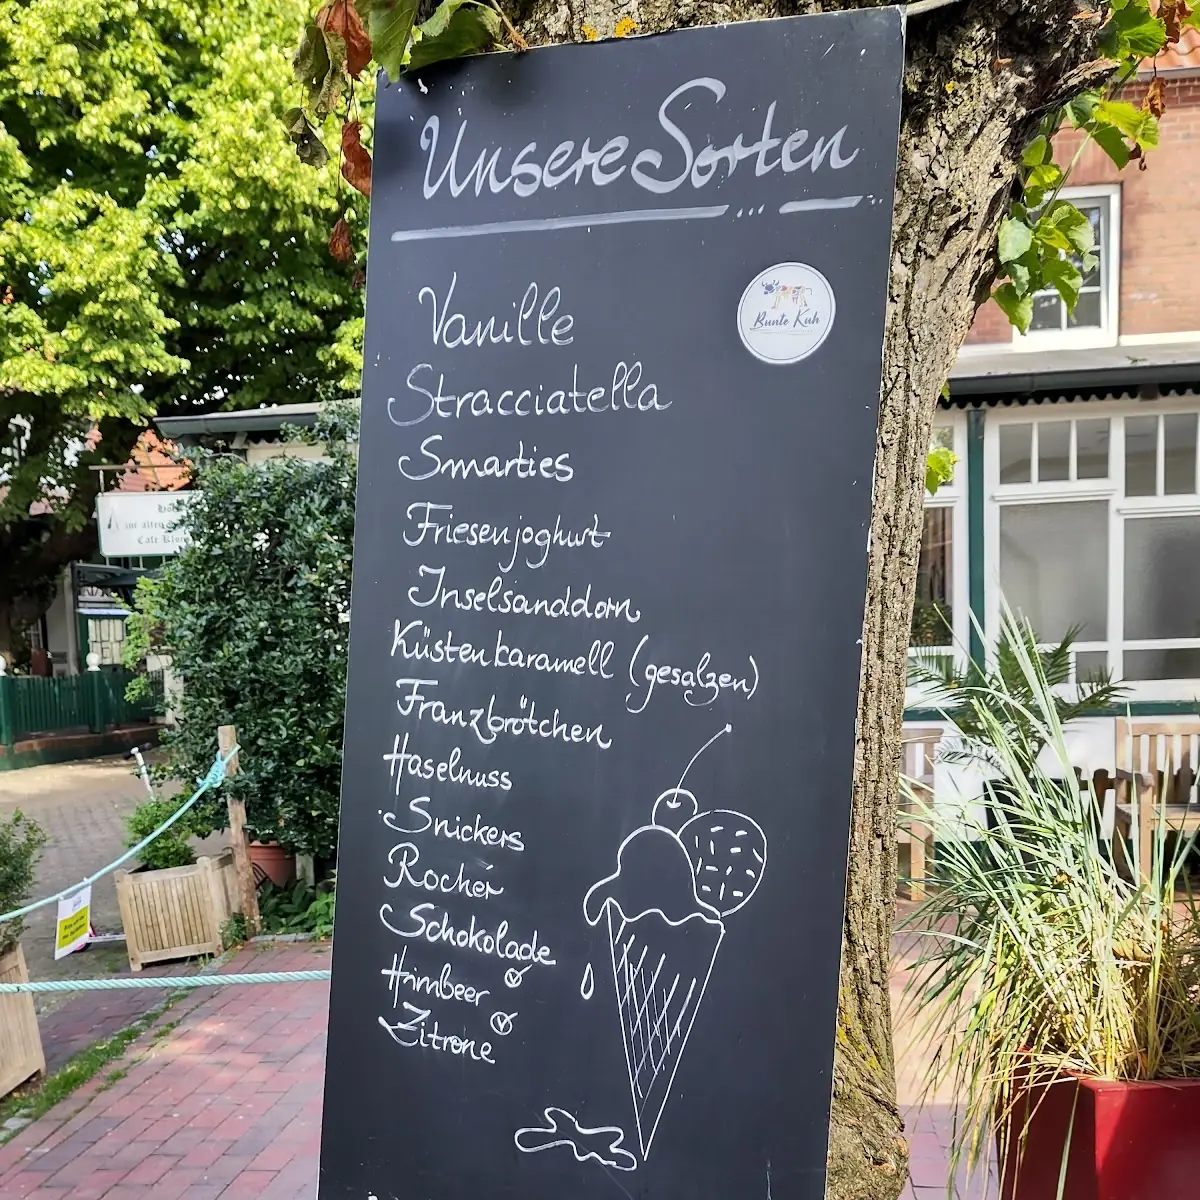 Unsere Sorten
Bunte Kuh
Vanille
Stracciatella
Smarties
Friesenjoghurt
Inselsanddorn
Küstenkaramell (gesalzen)
Franzbrötchen
Haselnuss
Snickers
Rocher
Schokolade
Himbeer Ⓥ
Zitrone Ⓥ